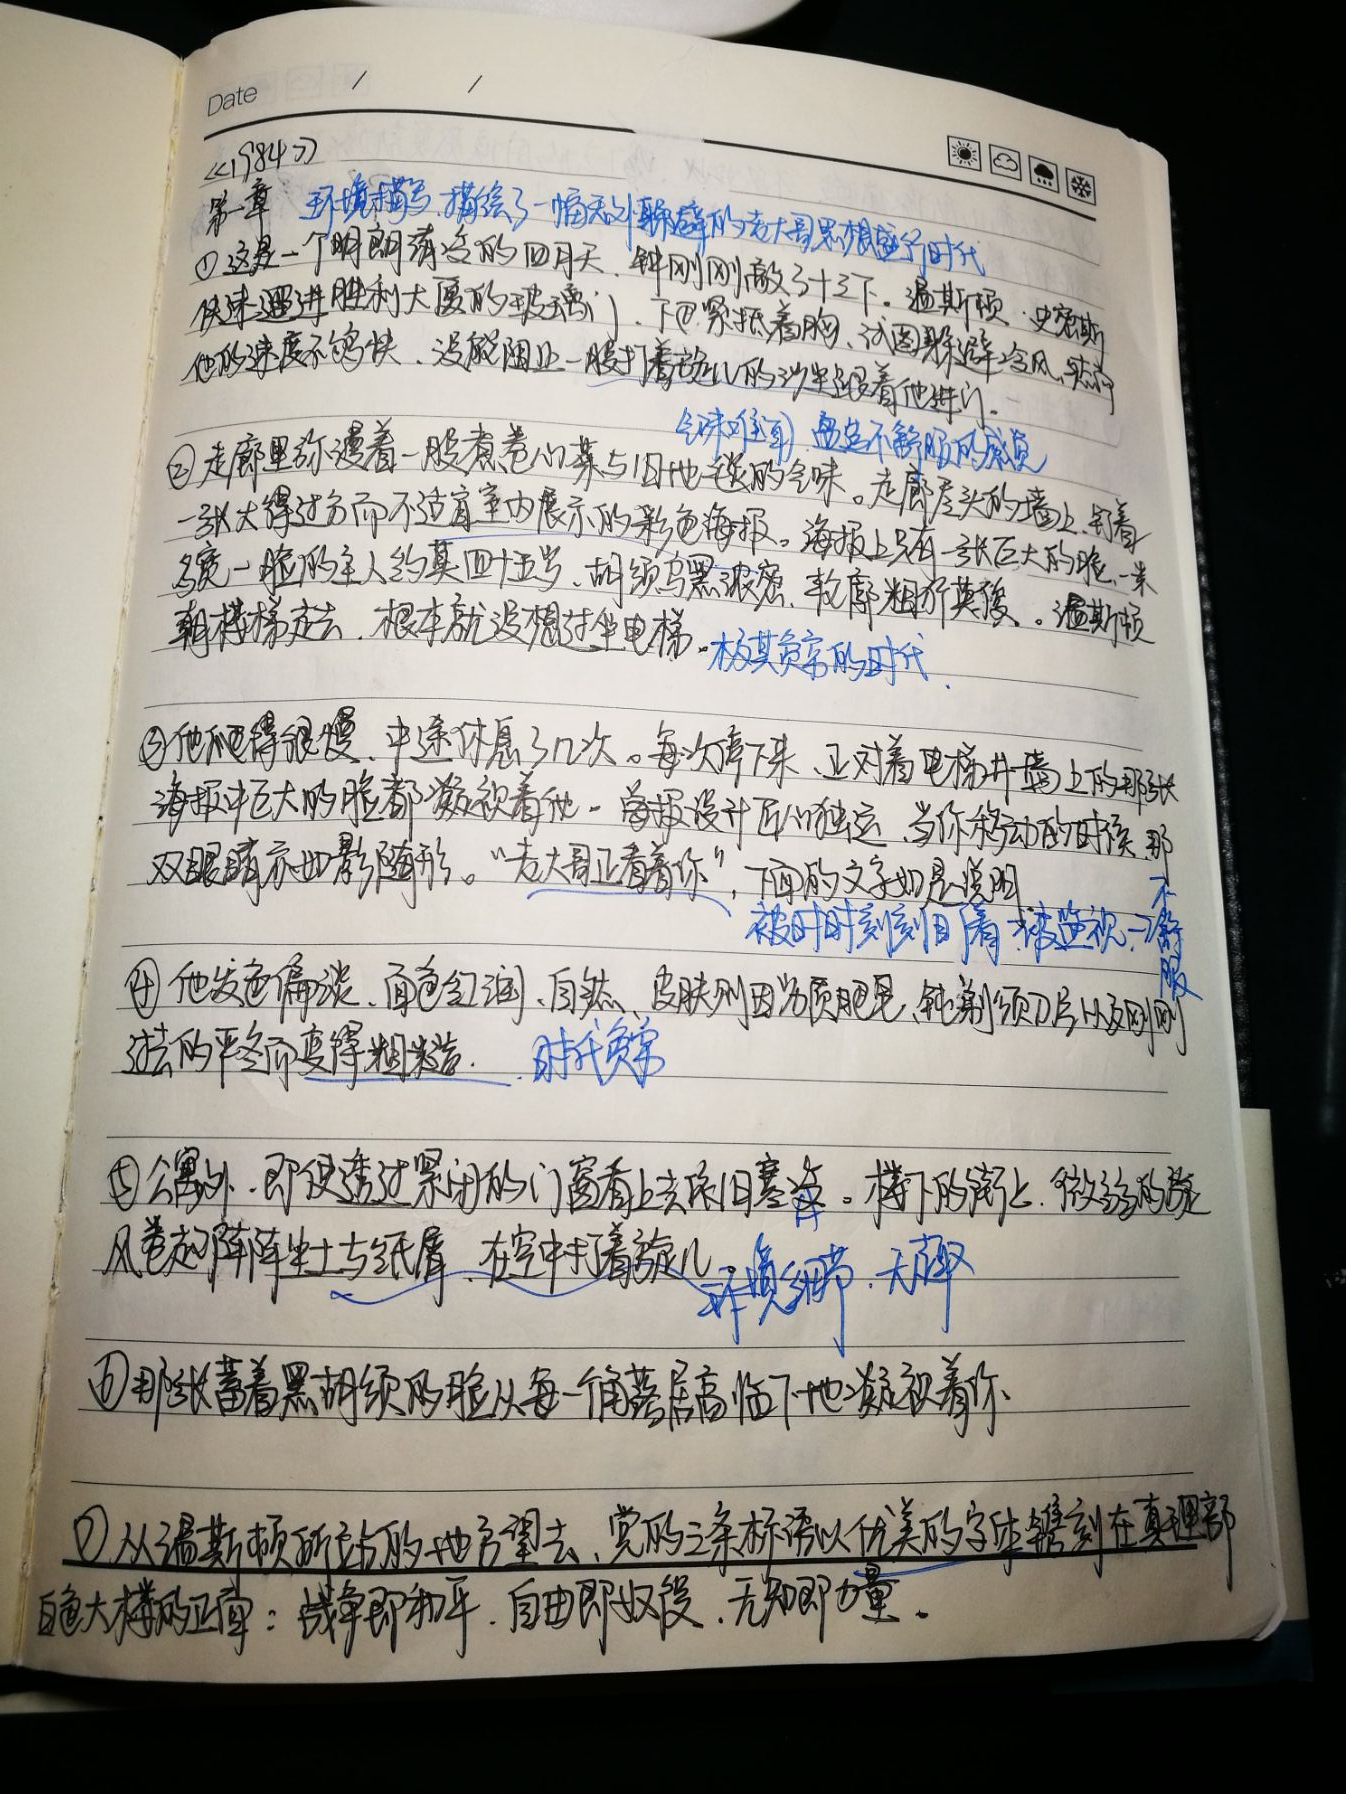 Date / /
《1984》
第一章 环境描写,描绘了一幅天外的老大哥黑根盛行时代
①这是一个明朗清冷的四月天,钟刚刚敲了十三下。温斯顿·史密斯
快速遛进胜利大厦的玻璃门,下巴紧抵着胸,试图躲避冷风,然而
他的速度不够快,没能阻止一股打着旋儿的沙尘跟着他进门。
气味难闻,营造不舒服的感觉
②走廊里弥漫着一股煮卷心菜与旧地毯的气味。走廊尽头的墙上,钉着
一张大得过分而不适宜室内展示的彩色海报。海报上只有一张巨大的脸,一米
多宽—脸的主人约莫四十五岁,胡须乌黑浓密,轮廓粗犷英俊。温斯顿
朝楼梯走去,根本就没想过坐电梯。极其贫穷的时代.
③他爬得很慢,中途休息了几次。每次停下来,正对着电梯井墙上的那张
海报中巨大的脸都凝视着他。海报设计匠心独运,当你移动的时候,那
双眼睛亦如影随形。“老大哥正看着你”,下面的文字如是说明
被时时刻刻盯着 被监视→不舒服
④他发色偏淡,面色红润、自然,皮肤则因劣质肥皂、钝剃须刀片以及刚刚
过去的严冬而变得粗糙. 时代贫穷
⑤公寓外,即使透过紧闭的门窗看上去依旧寒冷。楼下的街上,微弱的旋
风卷起阵阵尘土与纸屑,在空中打着旋儿。
环境细节,天气
⑥那张蓄着黑胡须的脸从每一个角落居高临下地凝视着你.
⑦从温斯顿所站的地方望去,党的三条标语以优美的字体镌刻在真理部
白色大楼的正面:战争即和平,自由即奴役,无知即力量。